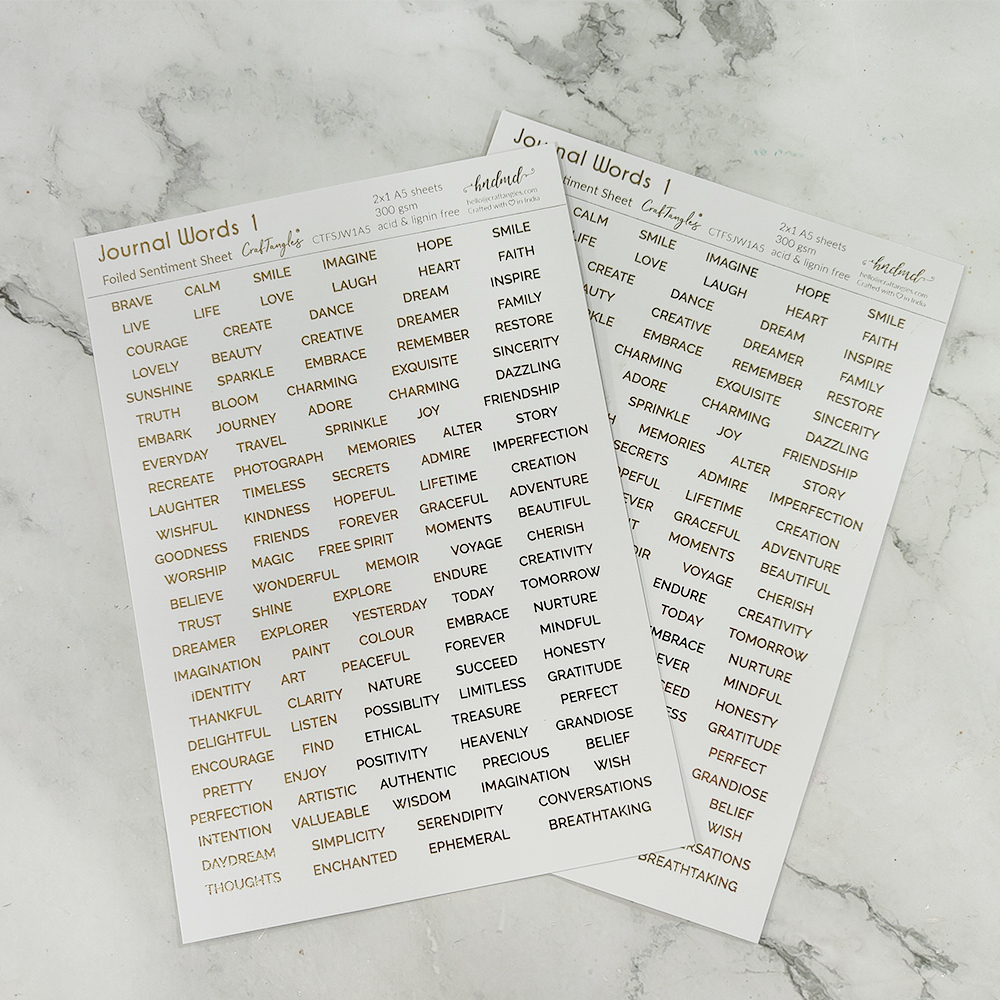 Journal Words 1
Foiled Sentiment Sheet CrafTangles CTFSJW1A5
2x1 A5 sheets
300 gsm
acid & lignin free
hndmd
hello@craftangles.com
Crafted with ♡ in India
BRAVE CALM SMILE IMAGINE HOPE SMILE
LIVE LIFE LOVE LAUGH HEART FAITH
COURAGE CREATE DANCE DREAM INSPIRE
LOVELY BEAUTY CREATIVE DREAMER FAMILY
SUNSHINE SPARKLE EMBRACE REMEMBER RESTORE
TRUTH BLOOM CHARMING EXQUISITE SINCERITY
EMBARK JOURNEY ADORE CHARMING DAZZLING
EVERYDAY TRAVEL SPRINKLE JOY FRIENDSHIP
RECREATE PHOTOGRAPH MEMORIES ALTER STORY
LAUGHTER TIMELESS SECRETS ADMIRE IMPERFECTION
WISHFUL KINDNESS HOPEFUL LIFETIME CREATION
GOODNESS FRIENDS FOREVER GRACEFUL ADVENTURE
WORSHIP MAGIC FREE SPIRIT MOMENTS BEAUTIFUL
BELIEVE WONDERFUL MEMOIR VOYAGE CHERISH
TRUST SHINE EXPLORE ENDURE CREATIVITY
DREAMER EXPLORER YESTERDAY TODAY TOMORROW
IMAGINATION PAINT COLOUR EMBRACE NURTURE
IDENTITY ART PEACEFUL FOREVER MINDFUL
THANKFUL CLARITY NATURE SUCCEED HONESTY
DELIGHTFUL LISTEN POSSIBLITY LIMITLESS GRATITUDE
ENCOURAGE FIND ETHICAL TREASURE PERFECT
PRETTY ENJOY POSITIVITY HEAVENLY GRANDIOSE
PERFECTION ARTISTIC AUTHENTIC PRECIOUS BELIEF
INTENTION VALUEABLE WISDOM IMAGINATION WISH
DAYDREAM SIMPLICITY SERENDIPITY CONVERSATIONS
THOUGHTS ENCHANTED EPHEMERAL BREATHTAKING
Journal Words 1
Sheet CrafTangles CTFSJW1A5
2x1 A5 sheets
300 gsm
acid & lignin free
hndmd
hello@craftangles.com
Crafted with ♡ in India
CALM SMILE IMAGINE HOPE SMILE
LIFE LOVE LAUGH HEART FAITH
CREATE DANCE DREAM INSPIRE
CREATIVE DREAMER FAMILY
EMBRACE REMEMBER RESTORE
CHARMING EXQUISITE SINCERITY
ADORE CHARMING DAZZLING
SPRINKLE JOY FRIENDSHIP
MEMORIES ALTER STORY
SECRETS ADMIRE IMPERFECTION
LIFETIME CREATION
GRACEFUL ADVENTURE
MOMENTS BEAUTIFUL
VOYAGE CHERISH
ENDURE CREATIVITY
TODAY TOMORROW
EMBRACE NURTURE
MINDFUL
HONESTY
GRATITUDE
PERFECT
GRANDIOSE
BELIEF
WISH
BREATHTAKING